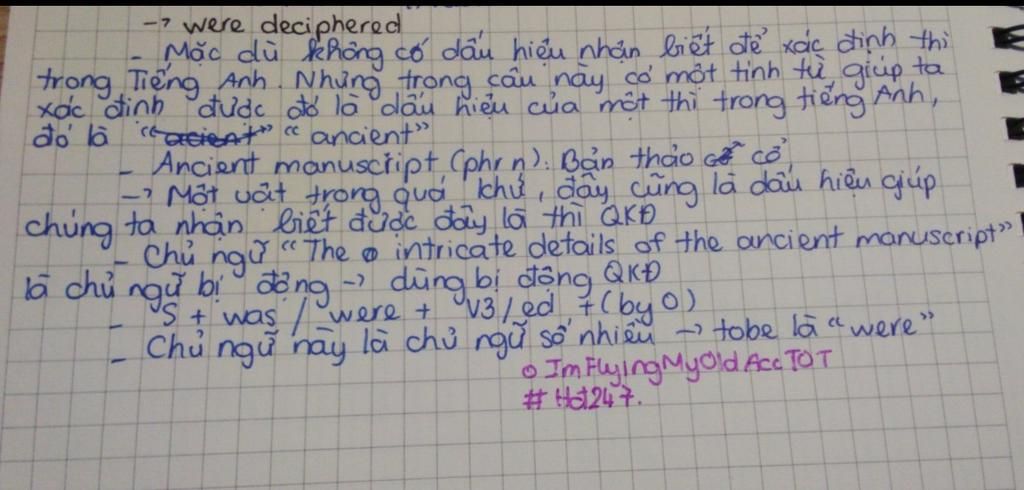 → were deciphered
- Mặc dù không có dấu hiệu nhận biết để xác định thì
trong Tiếng Anh. Nhưng trong câu này có một tính từ, giúp ta
xác định được đó là dấu hiệu của một thì trong tiếng Anh,
đó là "acient" "ancient"
- Ancient manuscript (phr n): Bản thảo cổ cổ
→ Một vật trong quá khứ, đây cũng là dấu hiệu giúp
chúng ta nhận biết được đây là thì QKĐ
- Chủ ngữ "The intricate details of the ancient manuscript"
là chủ ngữ bị động → dùng bị động QKĐ
- S + was / were + V3/ed + (by O)
- Chủ ngữ này là chủ ngữ số nhiều → tobe là "were"
ImFlyingMyOldAccTOT
# Hd247.